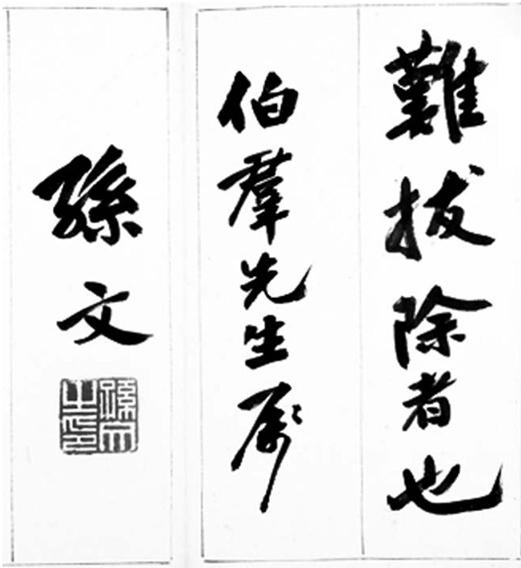 難拔除者也
伯羣先生屬
孫文
孫文之印